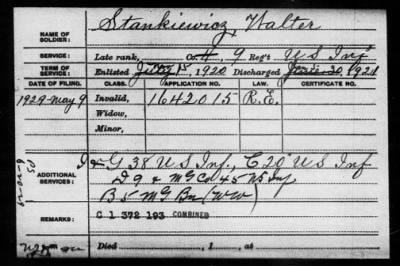 NAME OF SOLDIER: Stankiewicz, Walter
SERVICE: Late rank, Co. H, 9 Reg't U S Inf
TERM OF SERVICE: Enlisted July 15, 1920 Discharged June 20, 1921
DATE OF FILING. CLASS. APPLICATION NO. LAW. CERTIFICATE NO.
1929-May 9 Invalid, 1642015 R.E.
Widow,
Minor,
ADDITIONAL SERVICES: G 38 U S Inf, C 20 U S Inf
D 9 & M G Co 45 U S Inf
B 5 M G Bn (WW)
REMARKS: C 1 372 193 COMBINED
Died , 1 , at